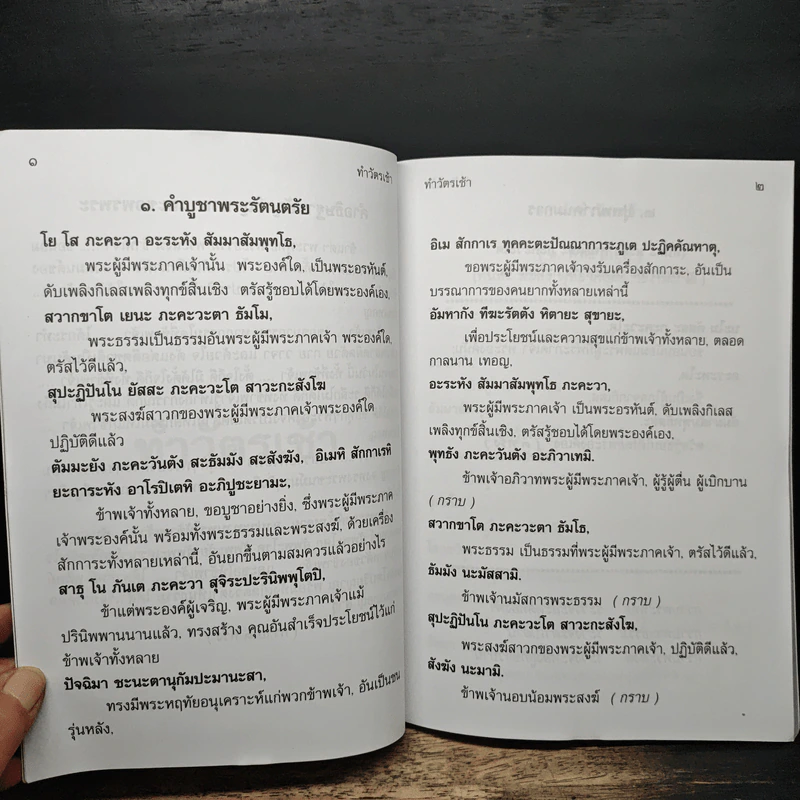 ๑
ทำวัตรเช้า
๑. คำบูชาพระรัตนตรัย
โย โส ภะคะวา อะระหัง สัมมาสัมพุทโธ,
พระผู้มีพระภาคเจ้านั้น พระองค์ใด, เป็นพระอรหันต์,
ดับเพลิงกิเลสเพลิงทุกข์สิ้นเชิง ตรัสรู้ชอบได้โดยพระองค์เอง,
สวากขาโต เยนะ ภะคะวะตา ธัมโม,
พระธรรมเป็นธรรมอันพระผู้มีพระภาคเจ้า พระองค์ใด,
ตรัสไว้ดีแล้ว,
สุปะฏิปันโน ยัสสะ ภะคะวะโต สาวะกะสังโฆ
พระสงฆ์สาวกของพระผู้มีพระภาคเจ้าพระองค์ใด
ปฏิบัติดีแล้ว
ตัมมะยัง ภะคะวันตัง สะธัมมัง สะสังฆัง, อิเมหิ สักกาเรหิ
ยะถาระหัง อาโรปิเตหิ อะภิปูชะยามะ,
ข้าพเจ้าทั้งหลาย, ขอบูชาอย่างยิ่ง, ซึ่งพระผู้มีพระภาค
เจ้าพระองค์นั้น พร้อมทั้งพระธรรมและพระสงฆ์, ด้วยเครื่อง
สักการะทั้งหลายเหล่านี้, อันยกขึ้นตามสมควรแล้วอย่างไร
สาธุ โน ภันเต ภะคะวา สุจิระปะรินิพพุโตปิ,
ข้าแต่พระองค์ผู้เจริญ, พระผู้มีพระภาคเจ้าแม้
ปรินิพพานนานแล้ว, ทรงสร้าง คุณอันสำเร็จประโยชน์ไว้แก่
ข้าพเจ้าทั้งหลาย
ปัจฉิมา ชะนะตานุกัมปะมานะสา,
ทรงมีพระหฤทัยอนุเคราะห์แก่พวกข้าพเจ้า, อันเป็นชน
รุ่นหลัง,
ทำวัตรเช้า
๒
อิเม สักกาเร ทุคคะตะปัณณาการะภูเต ปะฏิคคัณหาตุ,
ขอพระผู้มีพระภาคเจ้าจงรับเครื่องสักการะ, อันเป็น
บรรณาการของคนยากทั้งหลายเหล่านี้
อัมหากัง ทีฆะรัตตัง หิตายะ สุขายะ,
เพื่อประโยชน์และความสุขแก่ข้าพเจ้าทั้งหลาย, ตลอด
กาลนาน เทอญ,
อะระหัง สัมมาสัมพุทโธ ภะคะวา,
พระผู้มีพระภาคเจ้า เป็นพระอรหันต์, ดับเพลิงกิเลส
เพลิงทุกข์สิ้นเชิง, ตรัสรู้ชอบได้โดยพระองค์เอง,
พุทธัง ภะคะวันตัง อะภิวาเทมิ.
ข้าพเจ้าอภิวาทพระผู้มีพระภาคเจ้า, ผู้รู้ผู้ตื่น ผู้เบิกบาน
( กราบ )
สวากขาโต ภะคะวะตา ธัมโธ,
พระธรรม เป็นธรรมที่พระผู้มีพระภาคเจ้า, ตรัสไว้ดีแล้ว,
ธัมมัง นะมัสสามิ.
ข้าพเจ้านมัสการพระธรรม ( กราบ )
สุปะฏิปันโน ภะคะวะโต สาวะกะสังโฆ,
พระสงฆ์สาวกของพระผู้มีพระภาคเจ้า, ปฏิบัติดีแล้ว,
สังฆัง นะมามิ.
ข้าพเจ้านอบน้อมพระสงฆ์ ( กราบ )